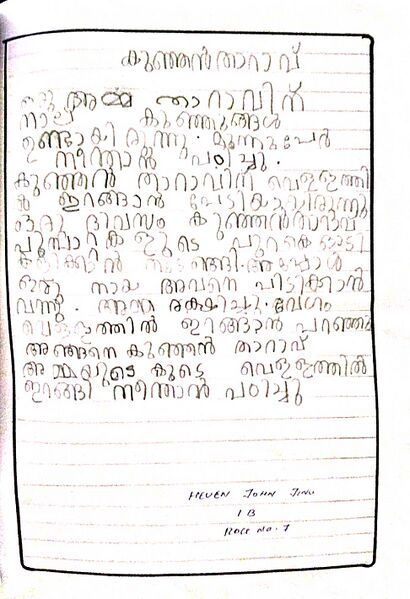 കുഞ്ഞൻതാറാവ്
ഒരു അമ്മ താറാവിന്
നാല് കുഞ്ഞുങ്ങൾ
ഉണ്ടായിരുന്നു. മൂന്നുപേർ
നീന്താൻ പഠിച്ചു.
കുഞ്ഞൻ താറാവിന് വെള്ളത്തി
ൽ ഇറങ്ങാൻ പേടിയായിരുന്നു
ഒരു ദിവസം കുഞ്ഞൻതാറാവ്
പൂമ്പാറ്റകളുടെ പുറകെ ഓടി
കളിക്കാൻ തുടങ്ങി. അപ്പോൾ
ഒരു നായ അവനെ പിടിക്കാൻ
വന്നു. അമ്മ രക്ഷിച്ചു. വേഗം
വെള്ളത്തിൽ ഇറങ്ങാൻ പറഞ്ഞു
അങ്ങനെ കുഞ്ഞൻ താറാവ്
അമ്മയുടെ കൂട്ടെ വെള്ളത്തിൽ
ഇറങ്ങി നീന്താൻ പഠിച്ചു
HEVEN JOHN JINU
1 B
ROLL NO. 7